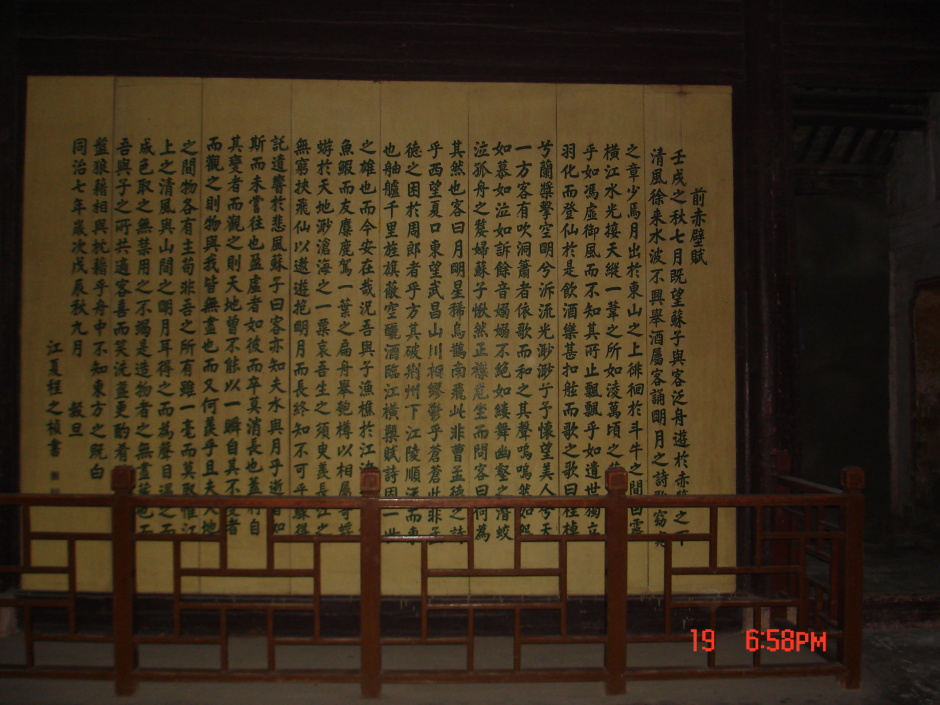 前赤壁賦
壬戌之秋七月既望蘇子與客泛舟遊於赤壁之下
清風徐來水波不興舉酒屬客誦明月之詩歌窈窕
之章少焉月出於東山之上徘徊於斗牛之間白露
橫江水光接天縱一葦之所如淩萬頃之茫
乎如馮虛御風而不知其所止飄飄乎如遺世獨立
羽化而登仙於是飲酒樂甚扣舷而歌之歌曰桂棹
兮蘭槳擊空明兮泝流光渺渺兮予懷望美人兮天
一方客有吹洞簫者依歌而和之其聲嗚嗚然如怨
如慕如泣如訴餘音嫋嫋不絕如縷舞幽壑之潛蛟
泣孤舟之嫠婦蘇子愀然正襟危坐而問客曰何為
其然也客曰月明星稀烏鵲南飛此非曹孟德之詩
乎西望夏口東望武昌山川相繆鬱乎蒼蒼此非孟
德之困於周郎者乎方其破荆州下江陵順流而東
也舳艫千里旌旗蔽空釃酒臨江橫槊賦詩固一世
之雄也而今安在哉況吾與子漁樵於江渚
魚鰕而友麋鹿駕一葉之扁舟舉匏樽以相屬寄蜉
蝣於天地渺滄海之一粟哀吾生之須臾羨長江之
無窮挾飛仙以遨遊抱明月而長終知不可乎驟得
託遺響於悲風蘇子曰客亦知夫水與月乎逝者如
斯而未嘗往也盈虛者如彼而卒莫消長也蓋將自
其變者而觀之則天地曾不能以一瞬自其不變者
而觀之則物與我皆無盡也而又何羨乎且夫天地
之間物各有主苟非吾之所有雖一毫而莫取惟江
上之清風與山間之明月耳得之而為聲目遇之而
成色取之無禁用之不竭是造物者之無盡藏也而
吾與子之所共適客喜而笑洗盞更酌肴
盤狼藉相與枕藉乎舟中不知東方之既白
同治七年歲次戊辰秋九月 穀旦
江夏程之楨書
19 6:58PM